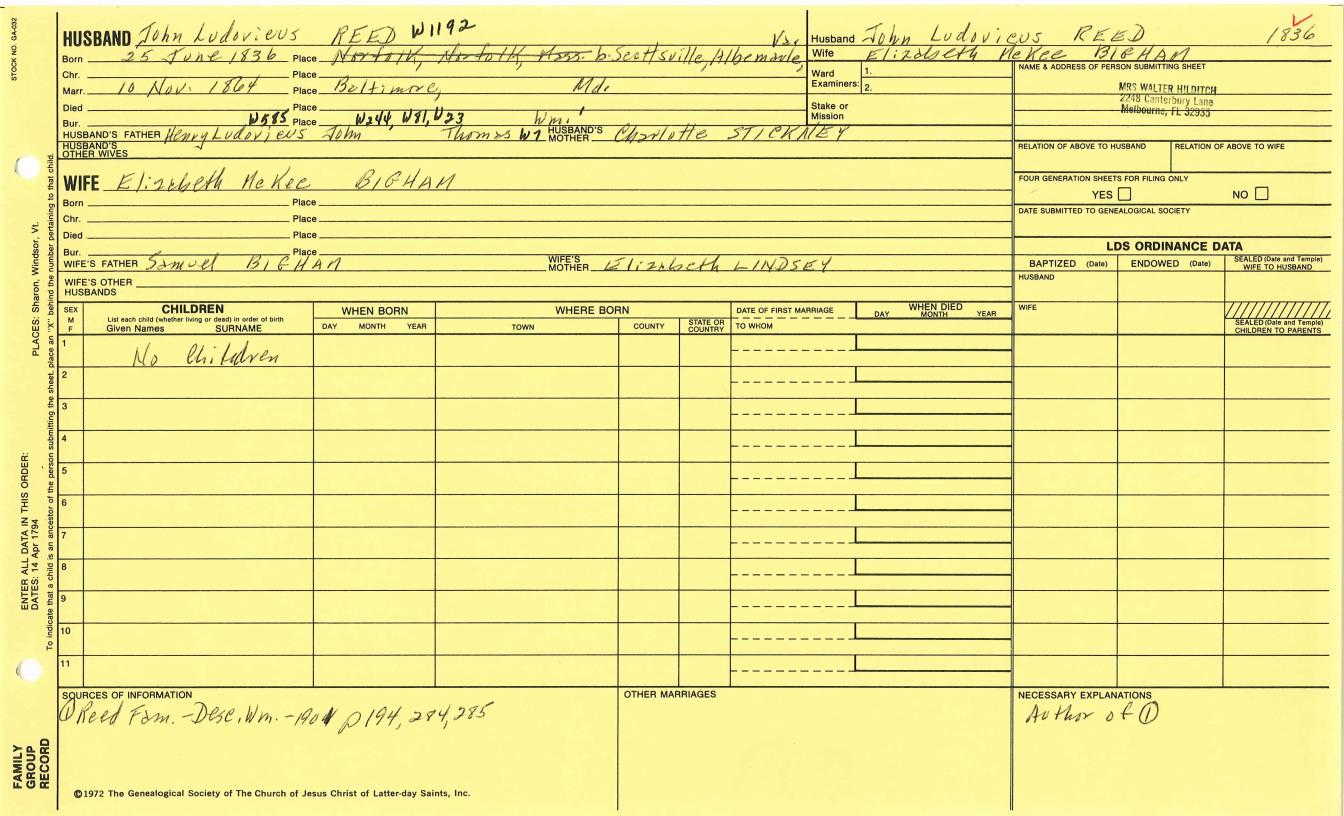 STOCK NO. GA-032
HUSBAND John Ludovicus REED W1192
Born 25 June 1836 Place Norfolk, Norfolk, Mass. b. Scottsville, Albemarle, Va.
Chr. Place
Marr. 10 Nov. 1864 Place Baltimore, Md.
Died Place
Bur. W585 Place W244, W81, W23 Wm.'
HUSBAND'S FATHER Henry Ludovicus John Thomas W7 HUSBAND'S MOTHER Charlotte STICKNEY
HUSBAND'S OTHER WIVES
WIFE Elizabeth McKee BIGHAM
Born Place
Chr. Place
Died Place
Bur. Place
WIFE'S FATHER Samuel BIGHAM WIFE'S MOTHER Elizabeth LINDSEY
WIFE'S OTHER HUSBANDS
Husband John Ludovicus REED 1836
Wife Elizabeth McKee BIGHAM
Ward Examiners: 1.
2.
Stake or Mission
NAME & ADDRESS OF PERSON SUBMITTING SHEET
MRS WALTER HILDITCH
2248 Canterbury Lane
Melbourne, FL 32935
RELATION OF ABOVE TO HUSBAND RELATION OF ABOVE TO WIFE
FOUR GENERATION SHEETS FOR FILING ONLY
YES NO
DATE SUBMITTED TO GENEALOGICAL SOCIETY
LDS ORDINANCE DATA
BAPTIZED (Date) ENDOWED (Date) SEALED (Date and Temple) WIFE TO HUSBAND
HUSBAND
WIFE
SEALED (Date and Temple) CHILDREN TO PARENTS
SEX M F
CHILDREN
List each child (whether living or dead) in order of birth
Given Names SURNAME
WHEN BORN
DAY MONTH YEAR
WHERE BORN
TOWN COUNTY STATE OR COUNTRY
DATE OF FIRST MARRIAGE
TO WHOM
WHEN DIED
DAY MONTH YEAR
1 No Children
2
3
4
5
6
7
8
9
10
11
SOURCES OF INFORMATION
① Reed Fam. - Desc. Wm. - 1901 p194, 284, 285
OTHER MARRIAGES
NECESSARY EXPLANATIONS
Author of ①
©1972 The Genealogical Society of The Church of Jesus Christ of Latter-day Saints, Inc.
FAMILY GROUP RECORD
ENTER ALL DATA IN THIS ORDER:
DATES: 14 Apr 1794
PLACES: Sharon, Windsor, Vt.
To indicate that a child is an ancestor of the person submitting the sheet, place an "X" behind the number pertaining to that child.